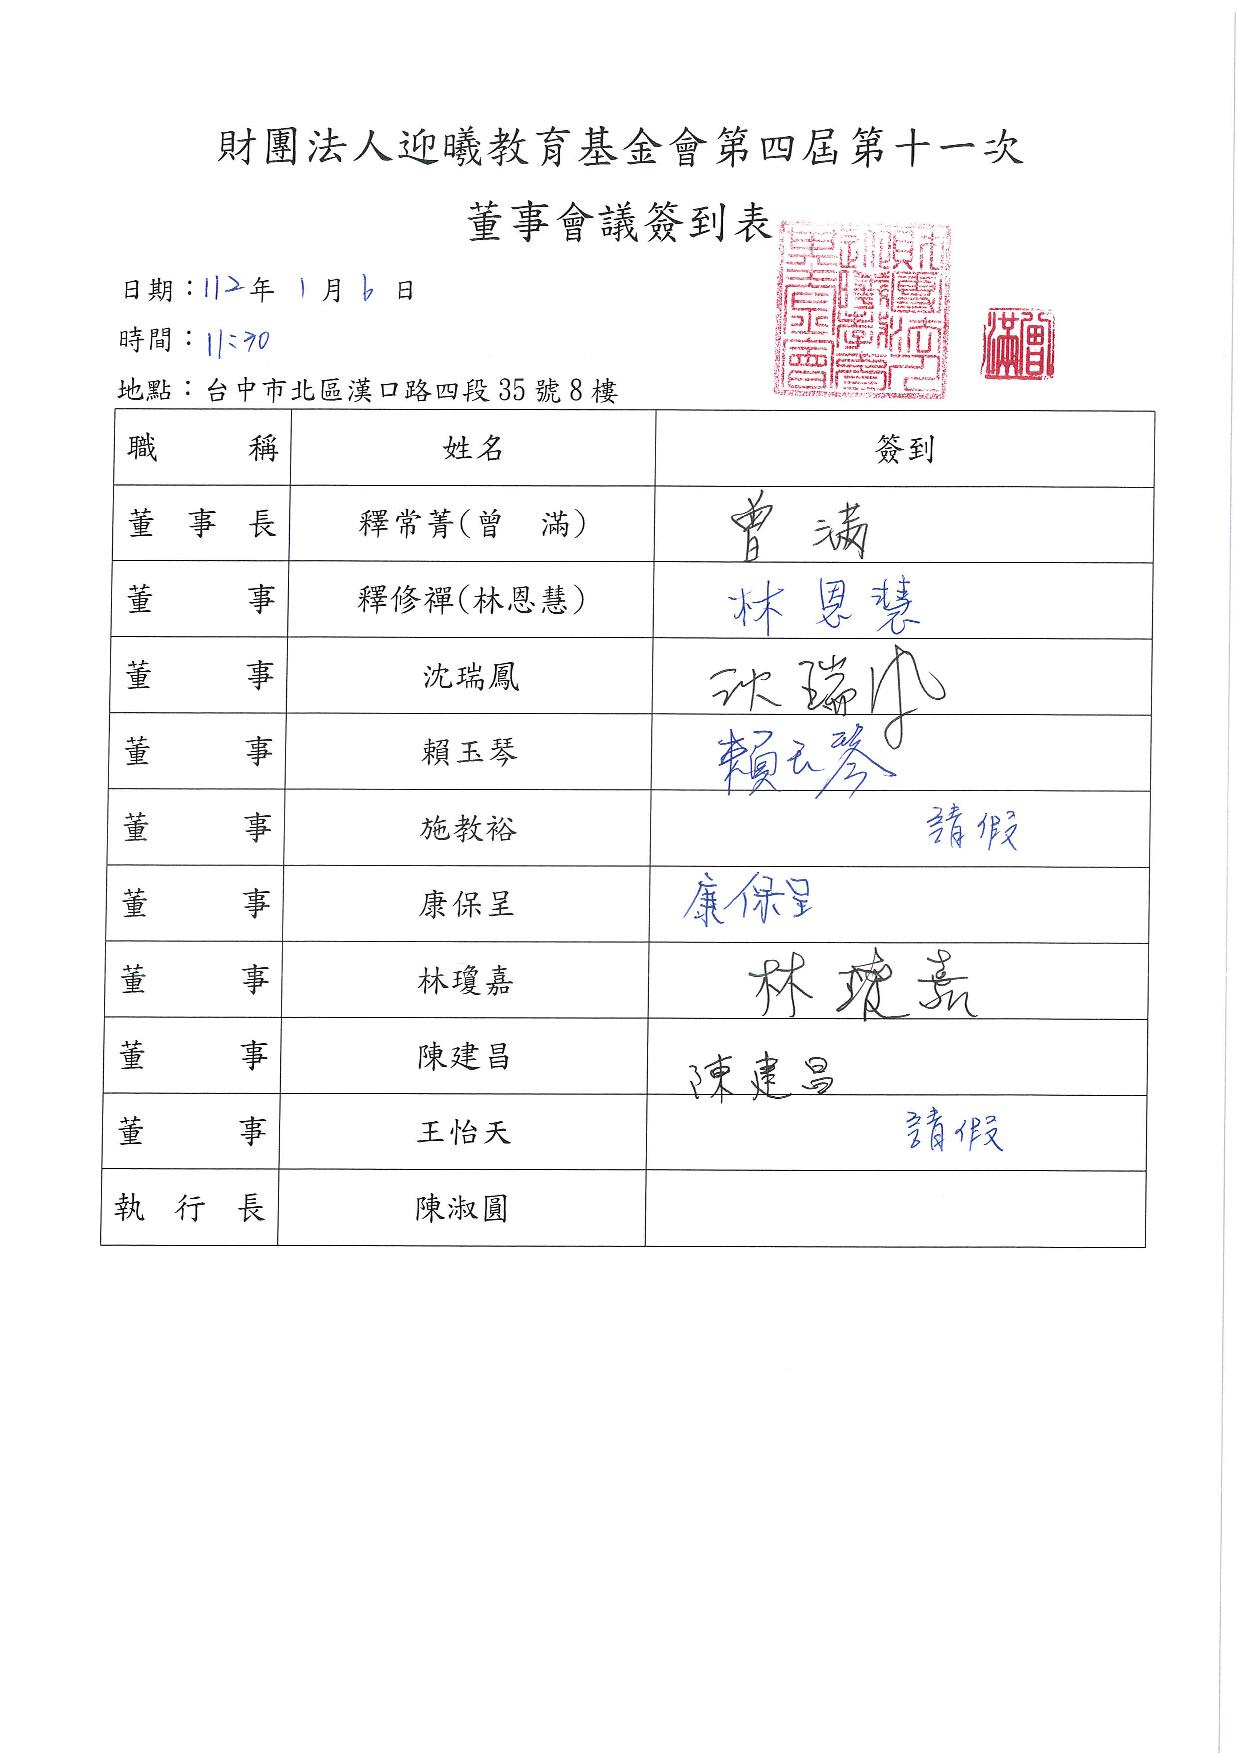 財團法人迎曦教育基金會第四屆第十一次
董事會議簽到表
日期：112年 1 月 6 日
時間：11:30
地點：台中市北區漢口路四段35號8樓
職 稱 姓名 簽到
董 事 長 釋常菁(曾 滿) 曾 滿
董 事 釋修禪(林恩慧) 林恩慧
董 事 沈瑞鳳 沈瑞鳳
董 事 賴玉琴 賴玉琴
董 事 施教裕 請假
董 事 康保呈 康保呈
董 事 林瓊嘉 林瓊嘉
董 事 陳建昌 陳建昌
董 事 王怡天 請假
執 行 長 陳淑圓
曾滿